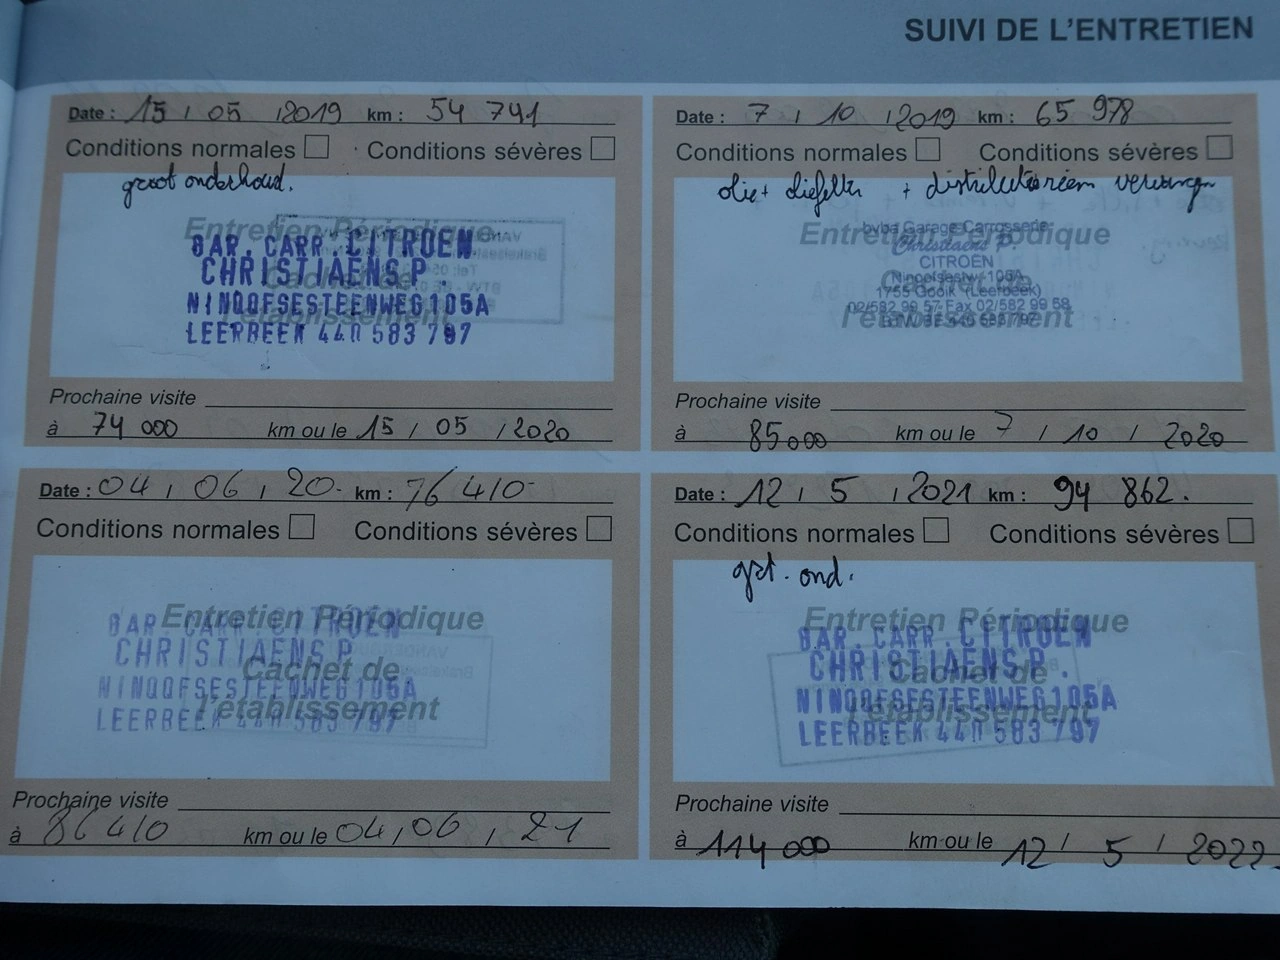 SUIVI DE L'ENTRETIEN
Date : 15 / 05 / 2019 km : 54 741
Conditions normales Conditions sévères
groot onderhoud.
Entretien Périodique
GAR. CARR. CITROEN
CHRISTIAENS P.
NINOOFSESTEENWEG 105A
LEERBEEK 440 583 797
Cachet de
l'établissement
Prochaine visite
à 74 000 km ou le 15 / 05 / 2020
Date : 7 / 10 / 2019 km : 65 978
Conditions normales Conditions sévères
olie + oliefilter + distributieriem vervangen
Entretien Périodique
bvba Garage Carrosserie
Christiaens P.
CITROËN
Ninoofsestwg 105A
1755 Gooik (Leerbeek)
02/582 99 57 Fax 02/582 99 58
Cachet de
l'établissement
Prochaine visite
à 85000 km ou le 7 / 10 / 2020
Date : 04 / 06 / 20 km : 76 410
Conditions normales Conditions sévères
Entretien Périodique
GAR. CARR. CITROEN
CHRISTIAENS P.
NINOOFSESTEENWEG 105A
LEERBEEK 440 583 797
Cachet de
l'établissement
Prochaine visite
à 86410 km ou le 04 / 06 / 21
Date : 12 / 5 / 2021 km : 94 862.
Conditions normales Conditions sévères
grt. ond.
Entretien Périodique
GAR. CARR. CITROEN
CHRISTIAENS P.
NINOOFSESTEENWEG 105A
LEERBEEK 440 583 797
Cachet de
l'établissement
Prochaine visite
à 114 000 km ou le 12 / 5 / 2022.